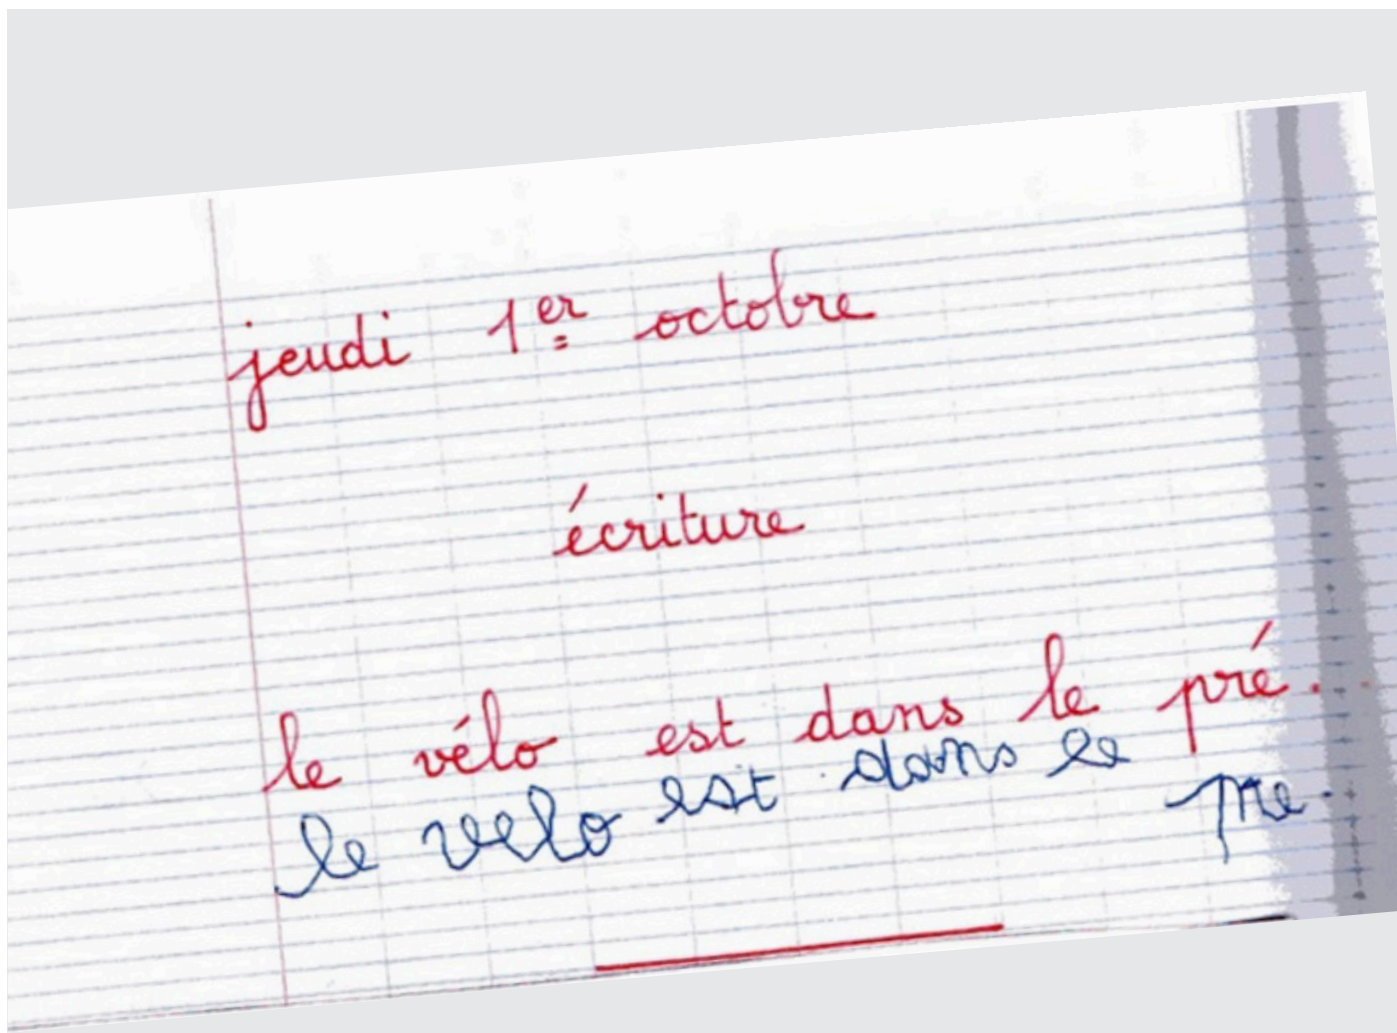 jeudi 1er octobre
écriture
le vélo est dans le pré.
le velo est dans le pre.